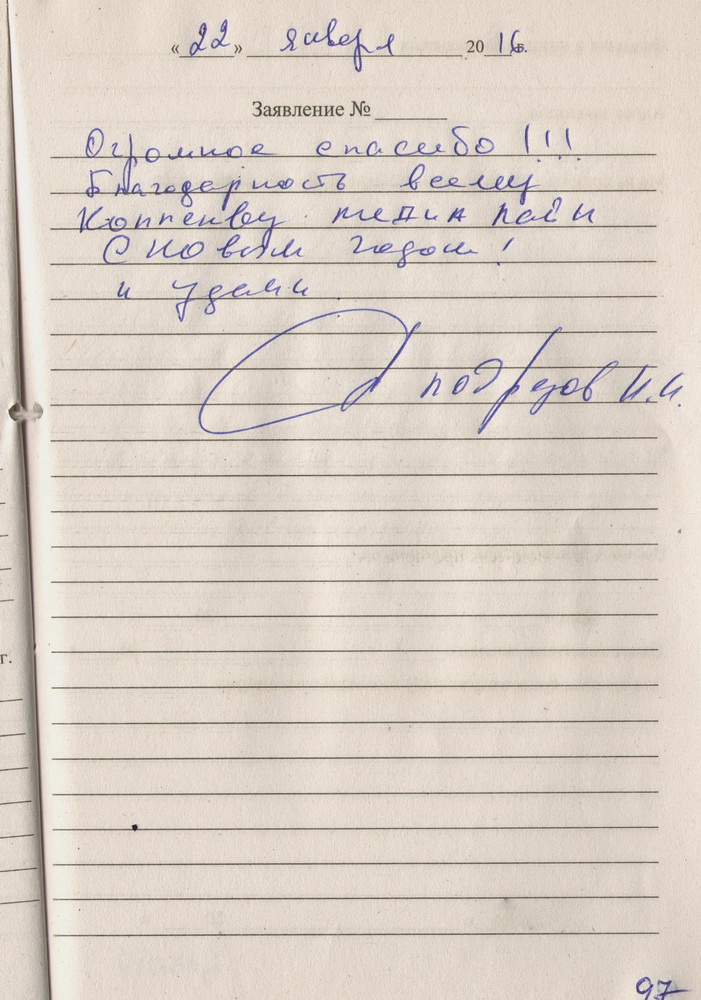 « 22 » января 20 16 г.
Заявление №
Огромное спасибо!!!
Благодарность всему
С новым годом!
и удачи
подрезов И.И.
г.
97